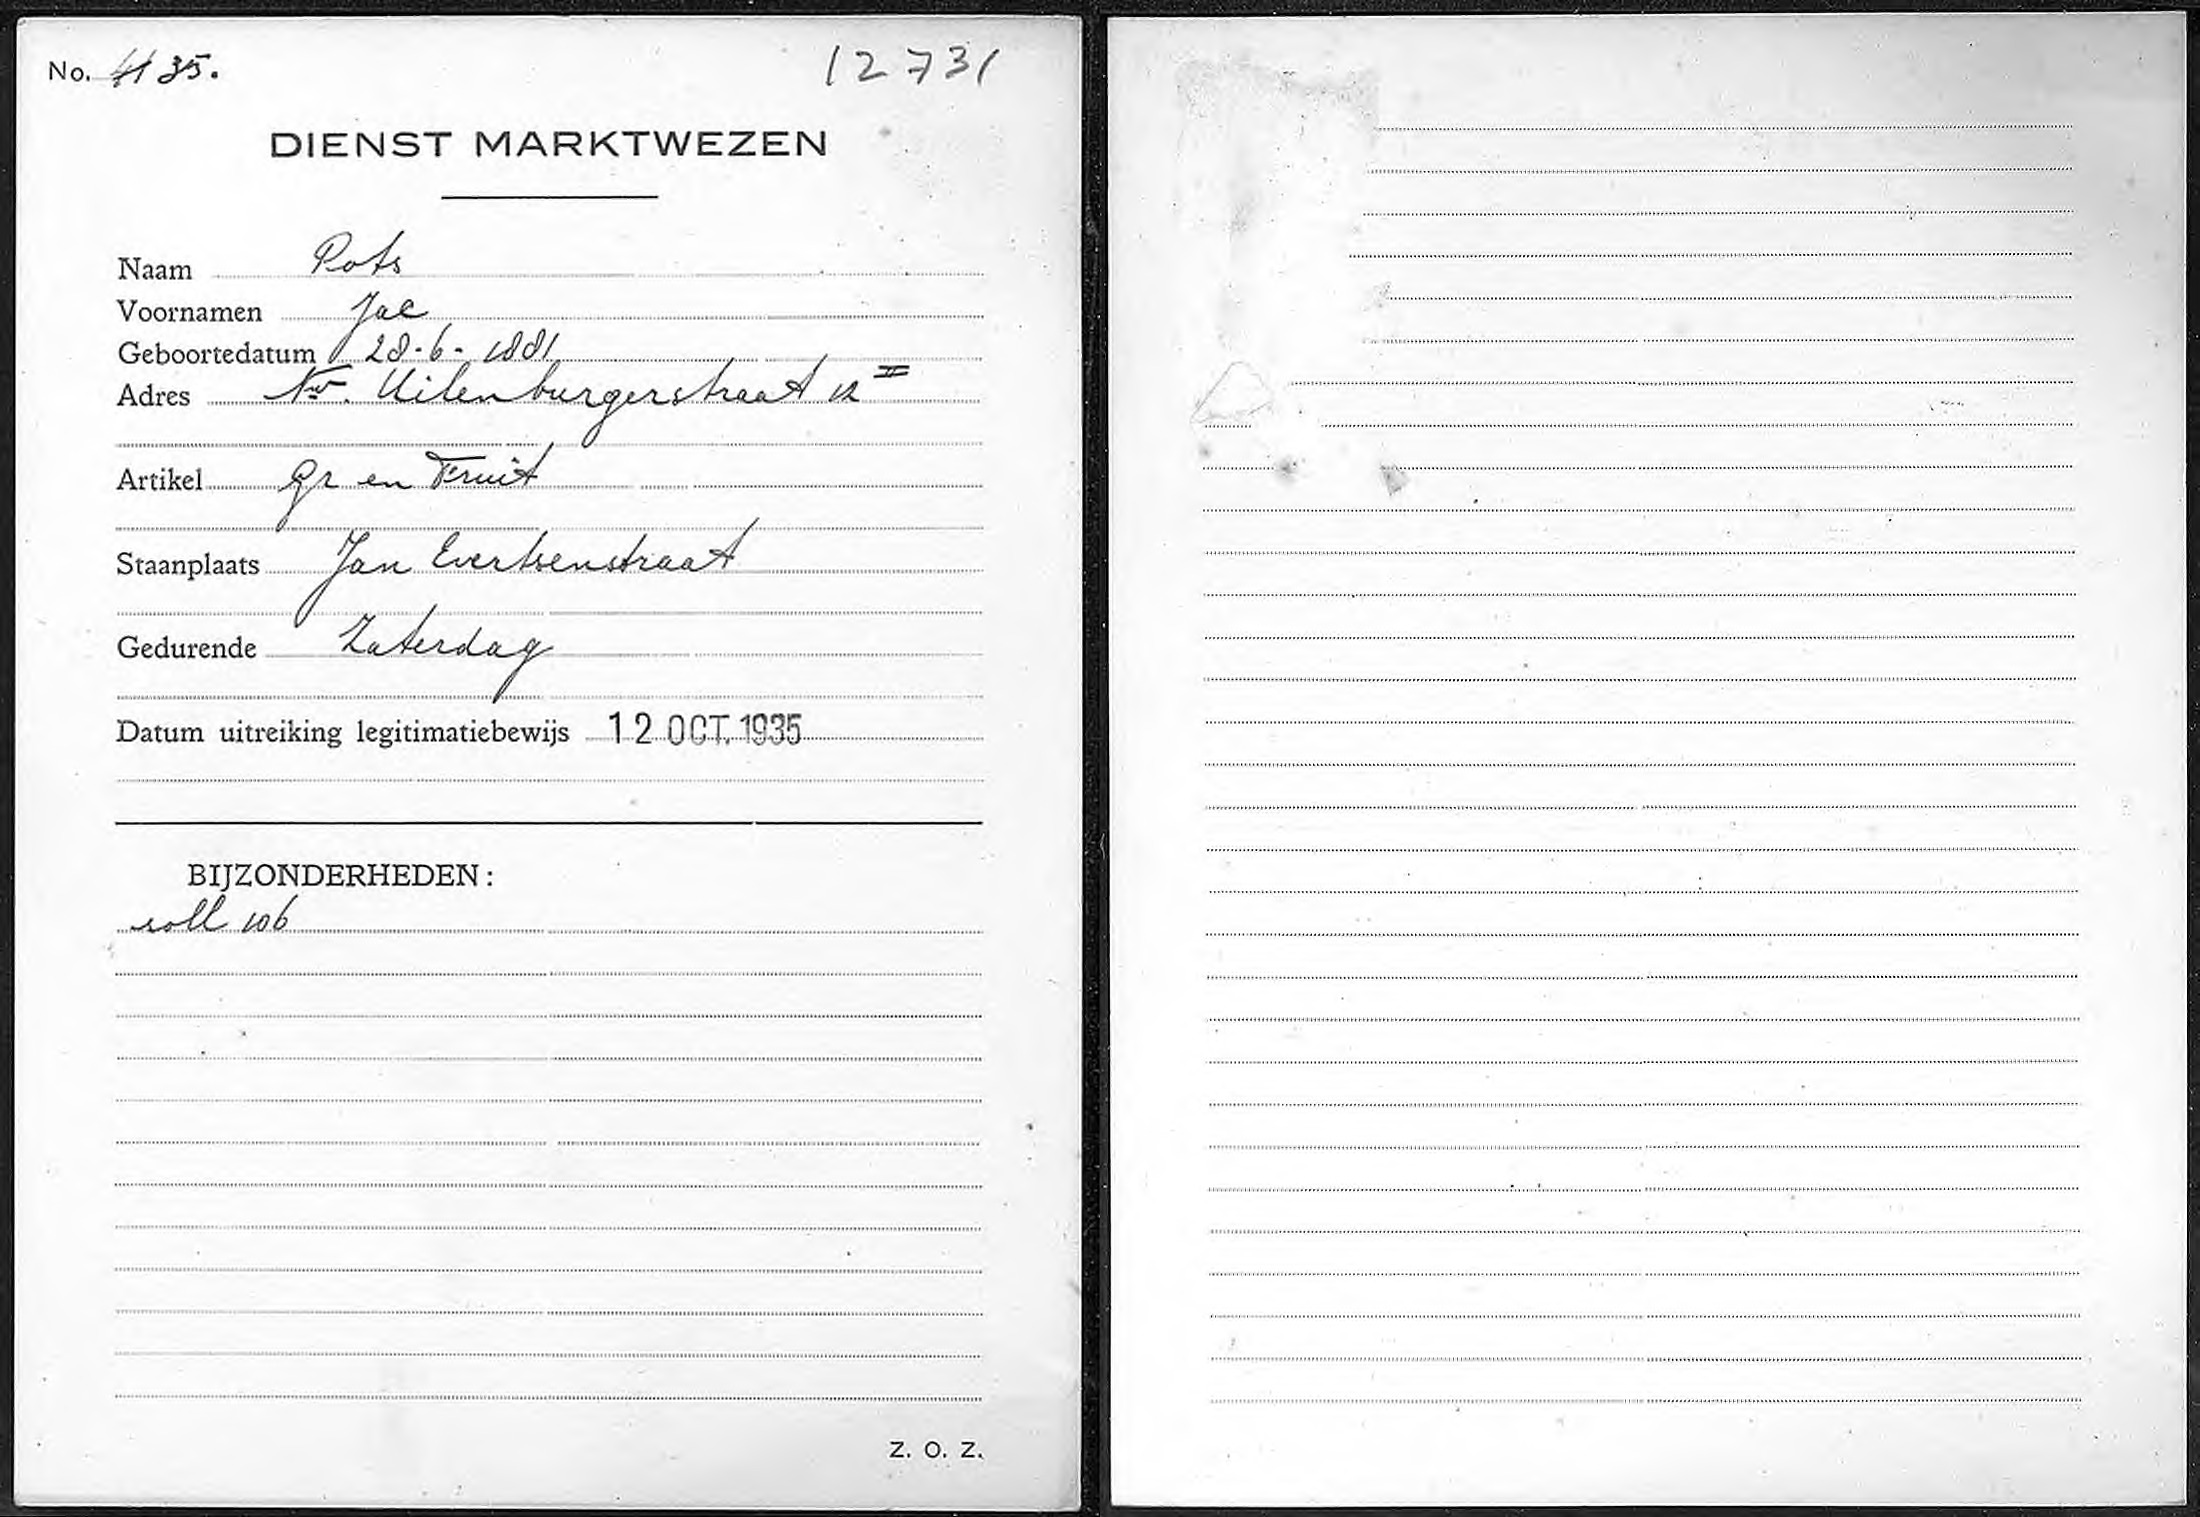 No. 4135.
12731
DIENST MARKTWEZEN
Naam Pots
Voornamen Jac
Geboortedatum 28-6-1881
Adres Nw. Uilenburgerstraat 12 II
Artikel Gr en Fruit
Staanplaats Jan Evertsenstraat
Gedurende Zaterdag
Datum uitreiking legitimatiebewijs 12 OCT. 1935
BIJZONDERHEDEN:
soll 106
Z. O. Z.